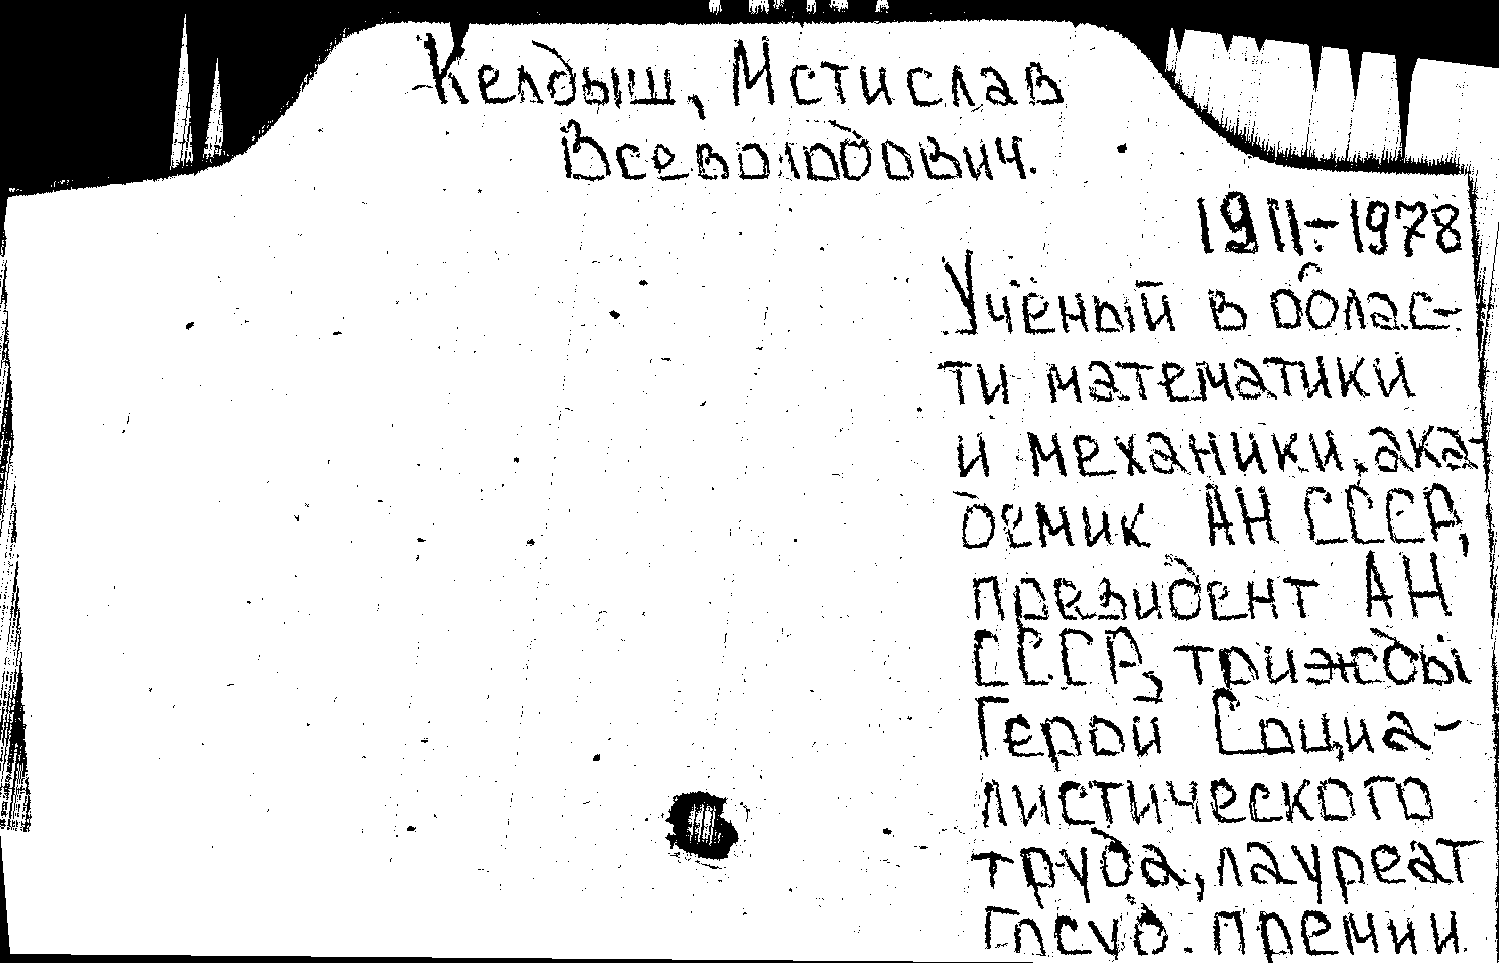 Келдыш, Мстислав
Всеволодович.
1911-1978
Учёный в облас-
ти математики
и механики, ака-
демик АН СССР,
президент АН
СССР, трижды
Герой Социа-
листического
труда, лауреат
Госуд. премии